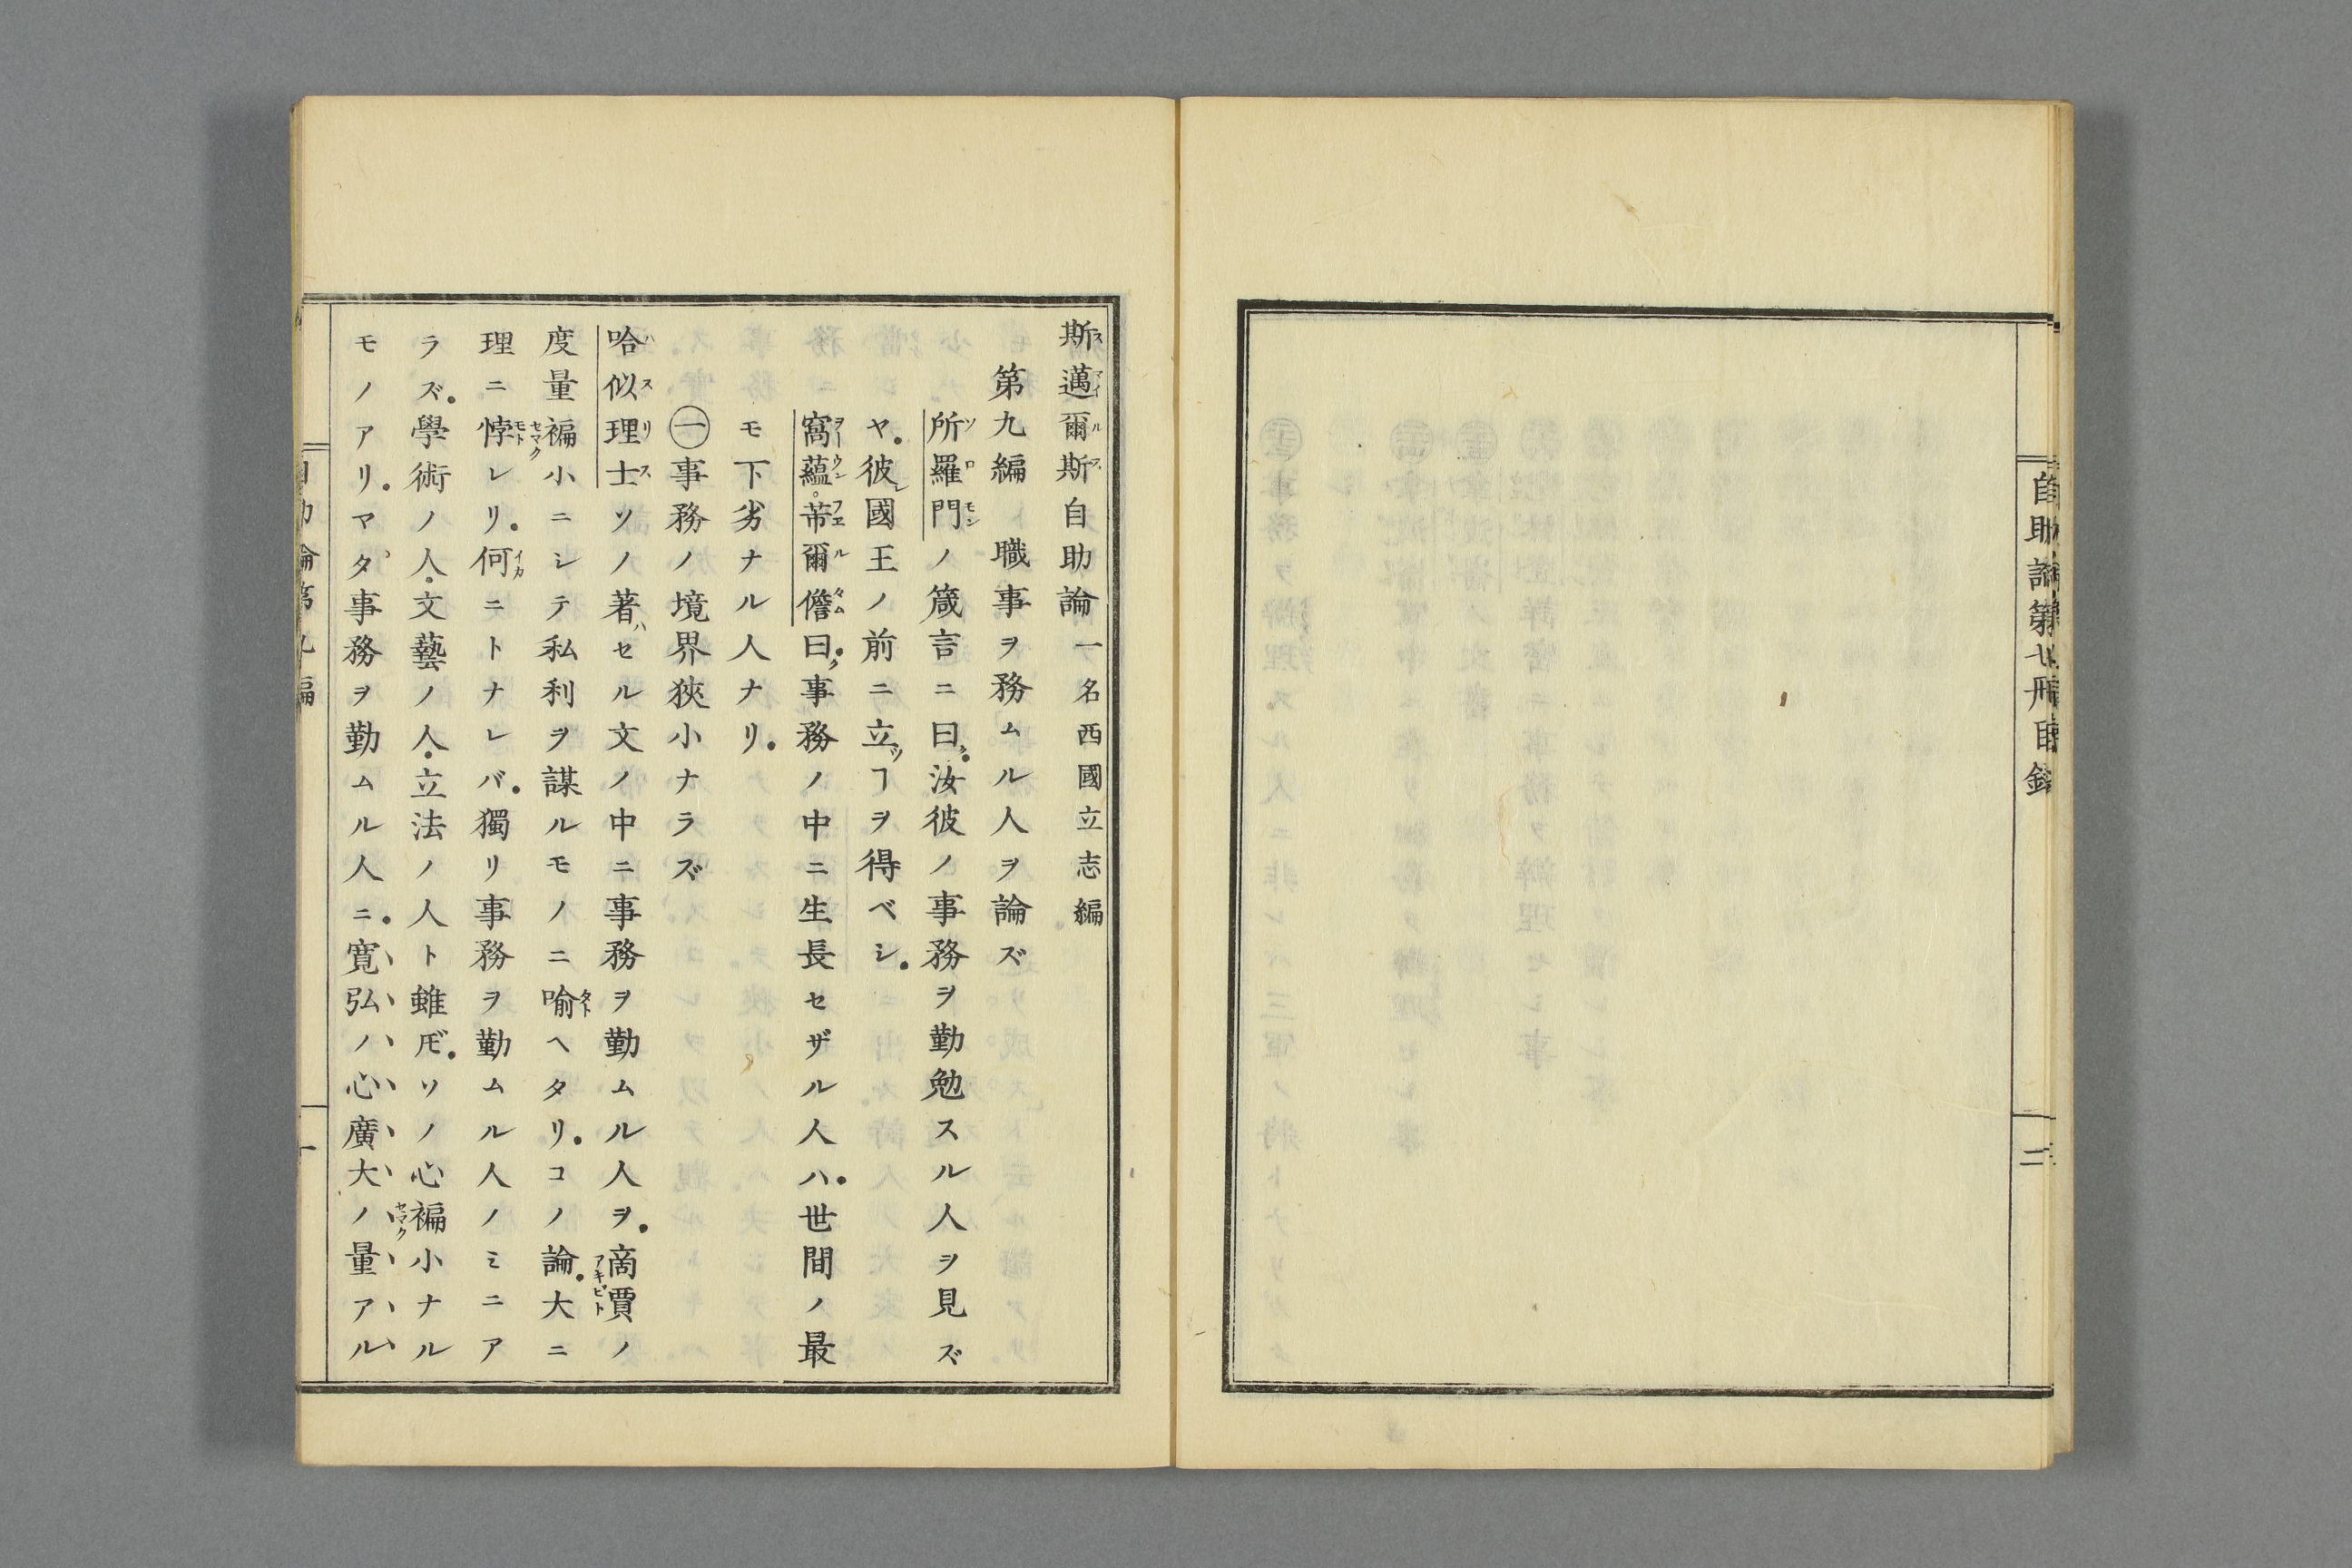 自助論第七册目錄
二
斯邁爾斯自助論 一名西國立志編
第九編 職事ヲ務ムル人ヲ論ズ
所羅門ノ箴言ニ曰ク。汝彼ノ事務ヲ勤勉スル人ヲ見ズ
ヤ。彼レ國王ノ前ニ立ツヿヲ得ベシ。
窩蘊。蒂爾儋曰ク。事務ノ中ニ生長セザル人ハ。世間ノ最
モ下劣ナル人ナリ。
㊀事務ノ境界狹小ナラズ
哈似理士ソノ著ハセル文ノ中ニ事務ヲ勤ムル人ヲ。商賈ノ
度量褊小ニシテ私利ヲ謀ルモノニ喻ヘタリ。コノ論。大ニ
理ニ悖レリ。何ニトナレバ。獨リ事務ヲ勤ムル人ノミニア
ラズ。學術ノ人。文藝ノ人。立法ノ人ト雖𪜈。ソノ心褊小ナル
モノアリ。マタ事務ヲ勤ムル人ニ。寬弘ノ心廣大ノ量アル